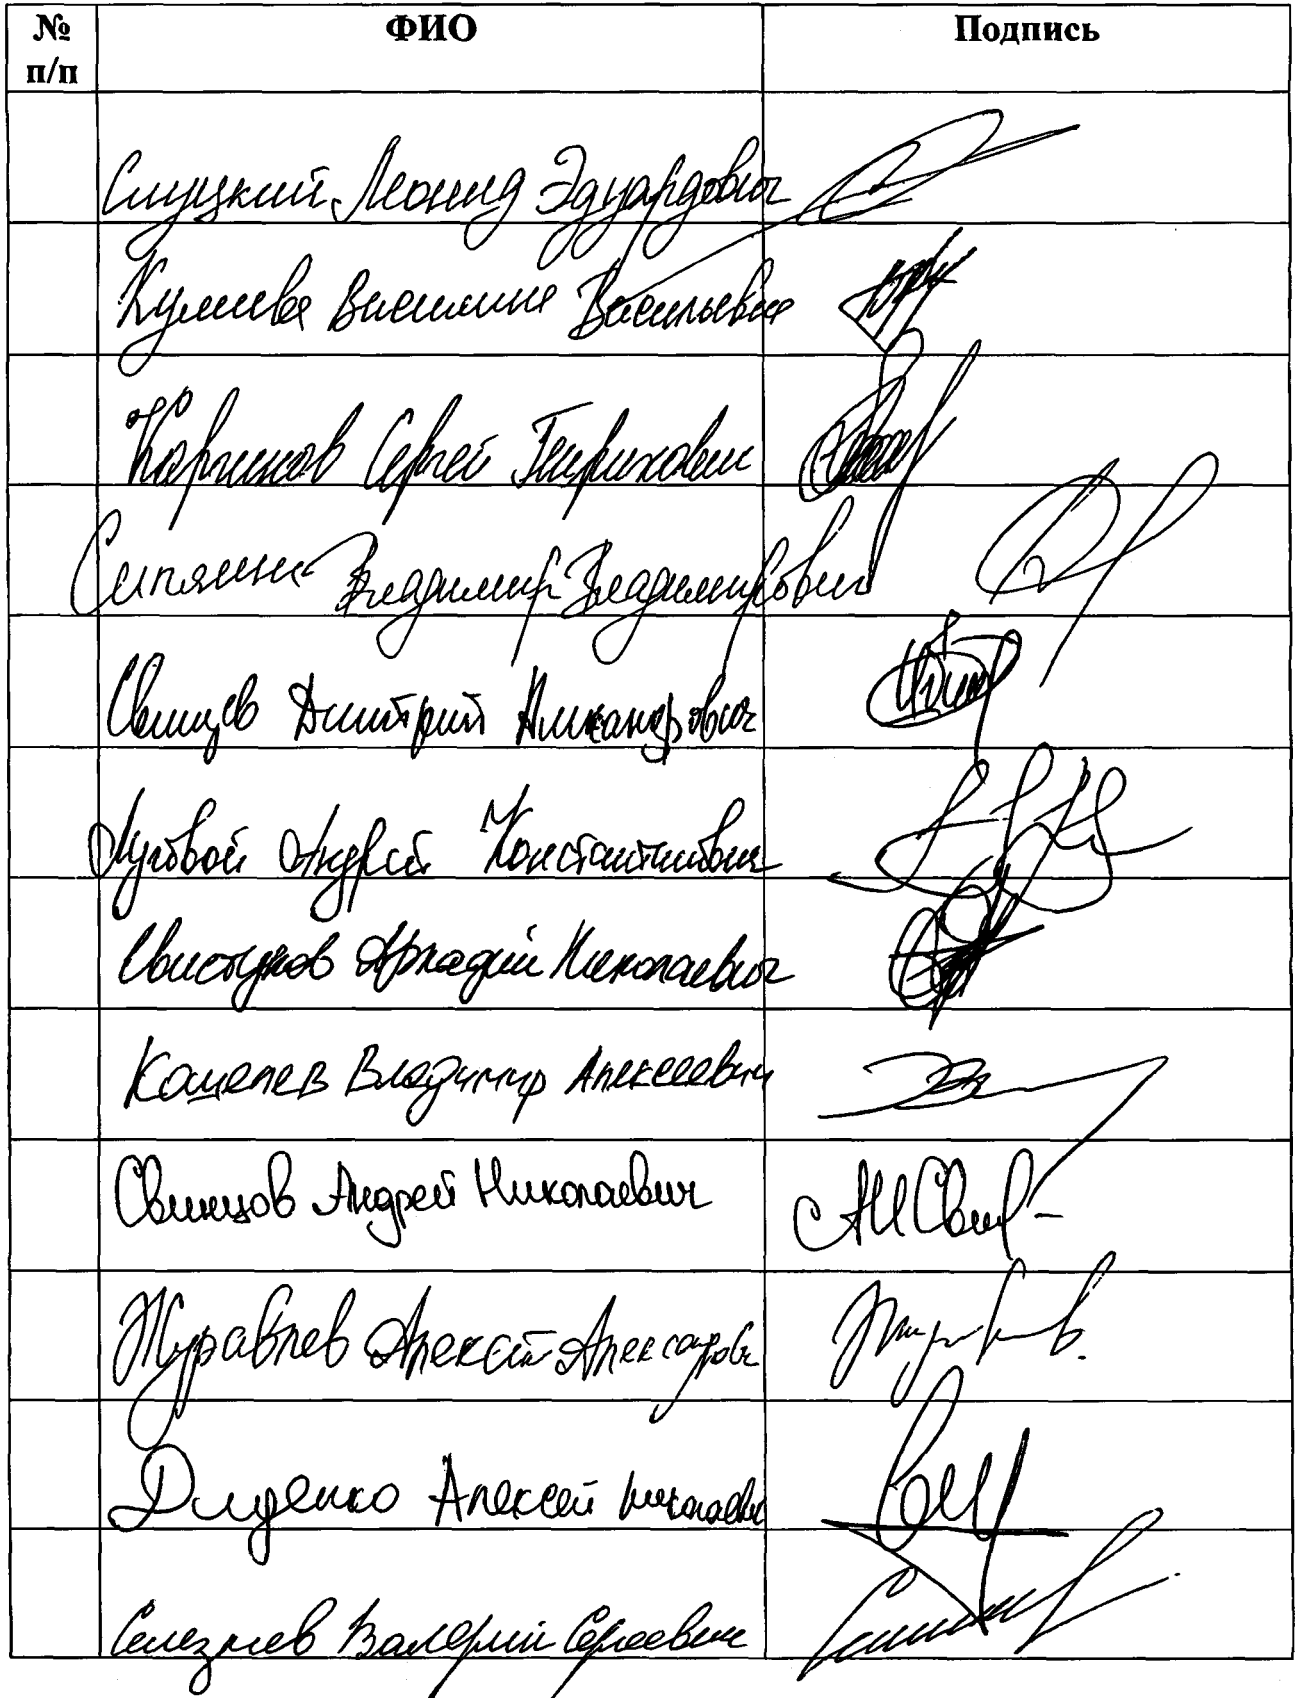 № п/п ФИО Подпись
Слуцкий Леонид Эдуардович
Кулиева Василина Васильевна
Каргинов Сергей Генрихович
Сипягин Владимир Владимирович
Свищев Дмитрий Александрович
Луговой Андрей Константинович
Свистунов Аркадий Николаевич
Кошелев Владимир Алексеевич
Свинцов Андрей Николаевич
Журавлев Алексей Александрович
Диденко Алексей Николаевич
Селезнев Валерий Сергеевич